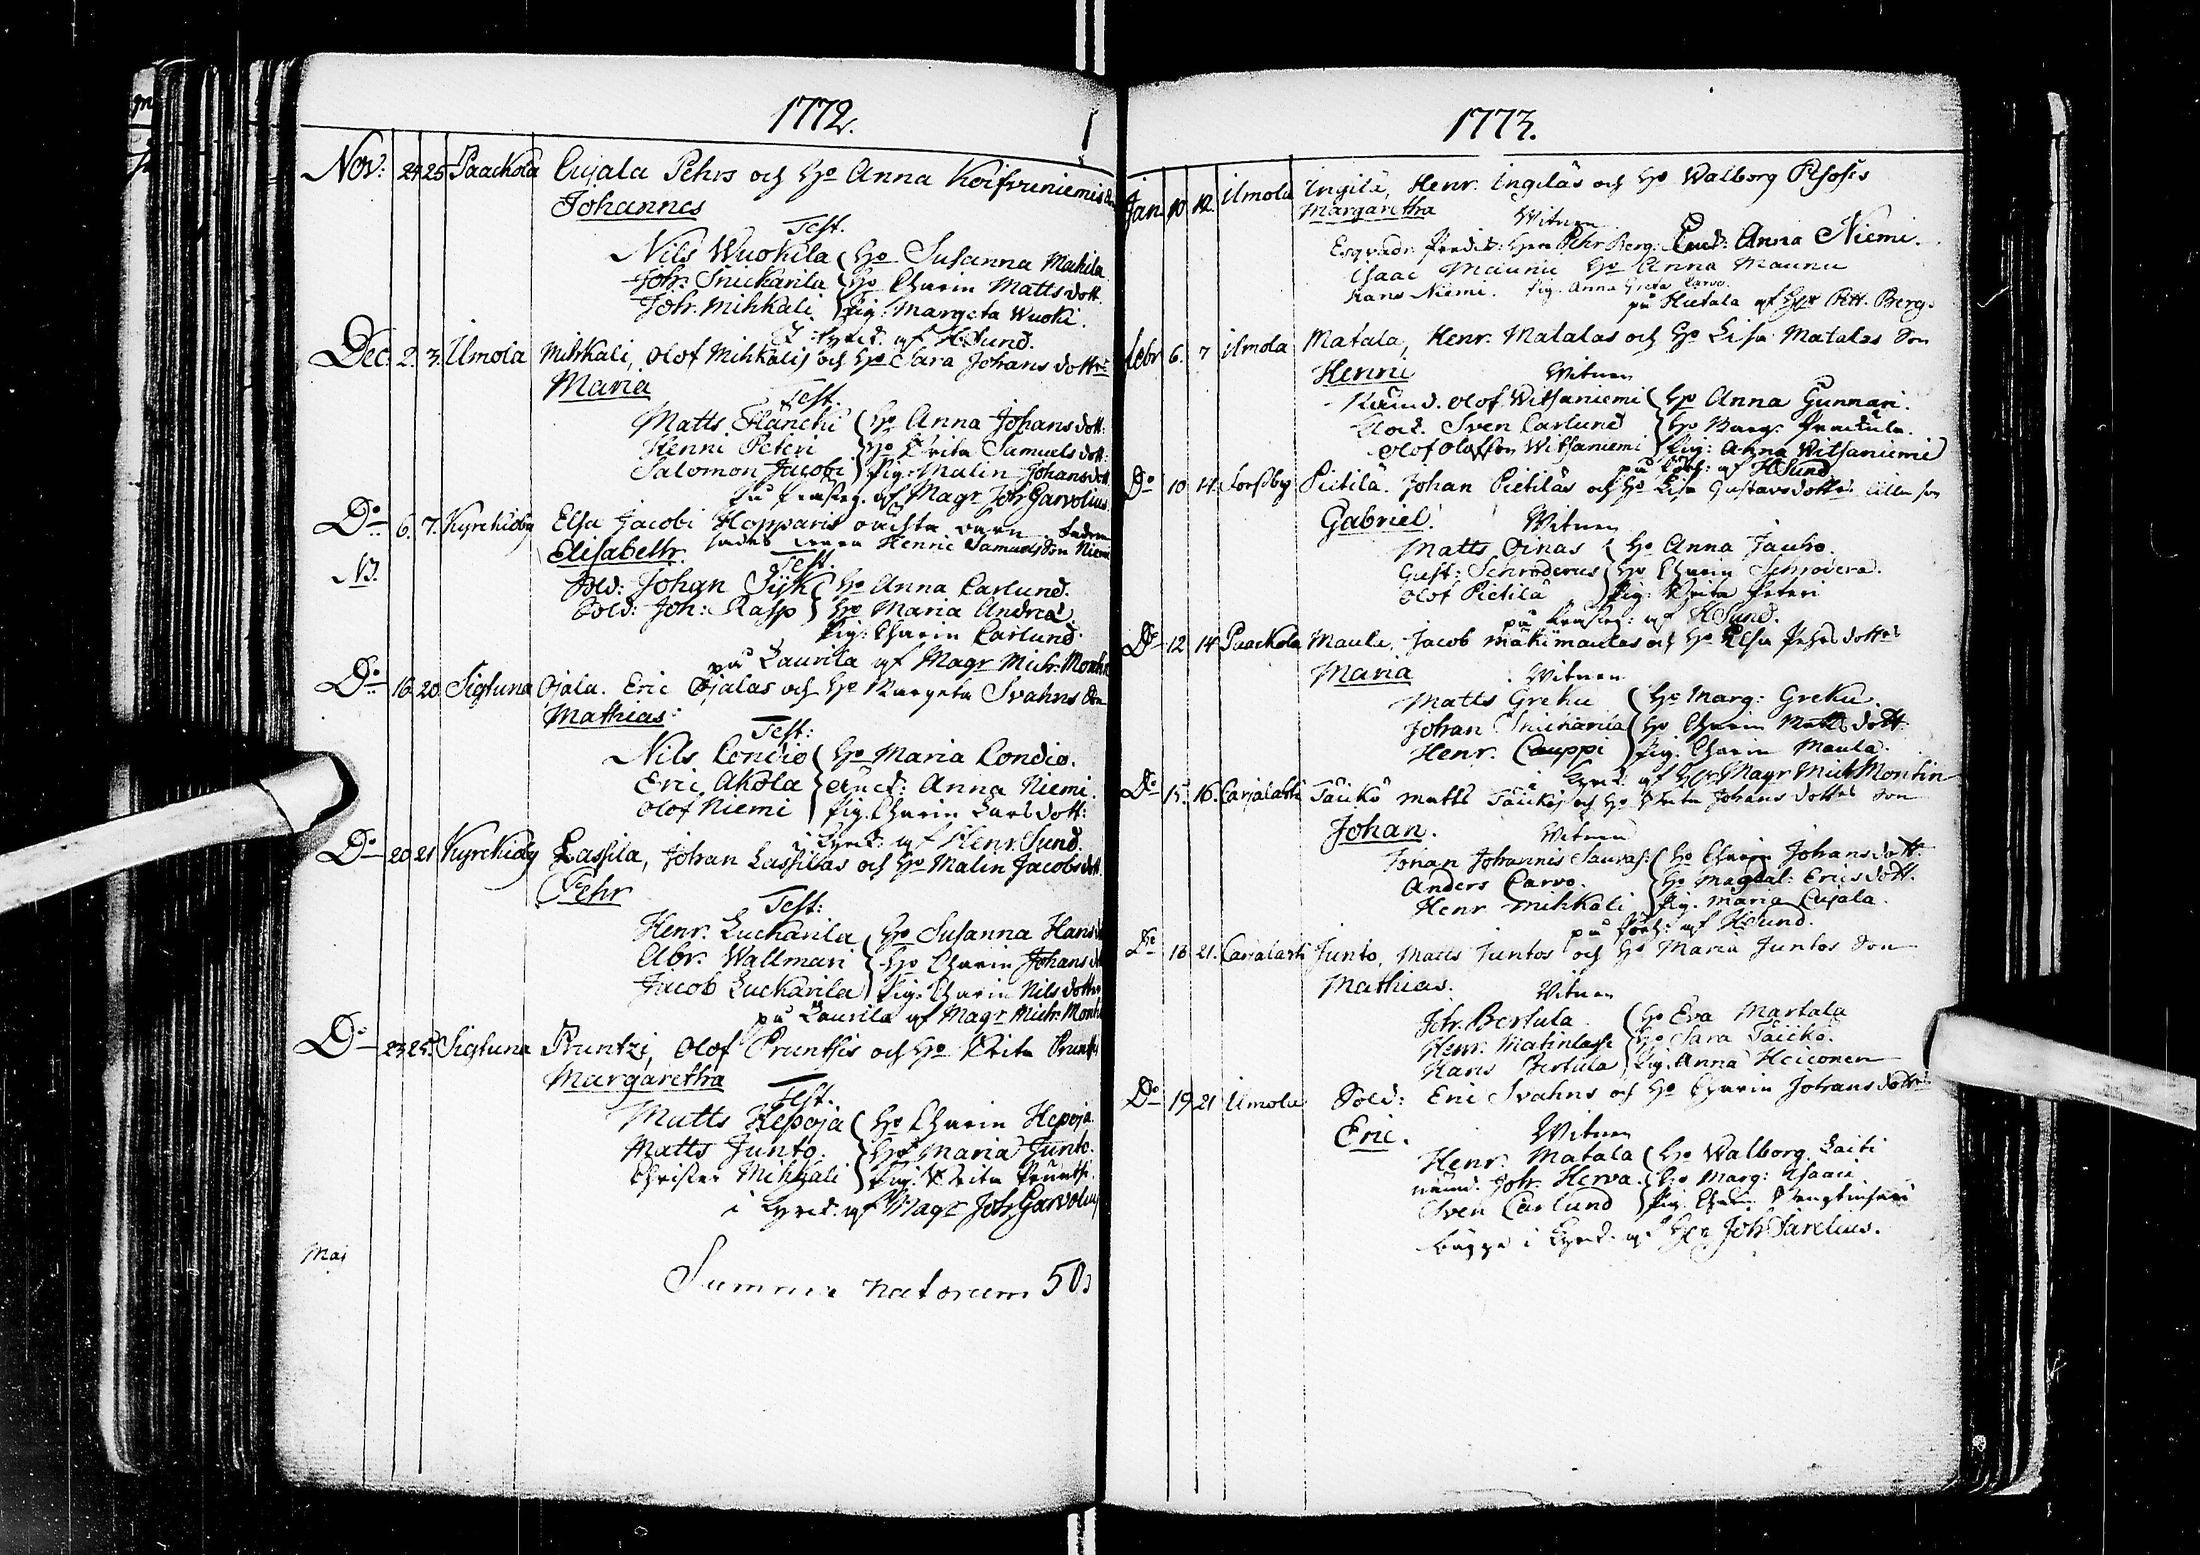 1772.
Nov: 24 25 Paackola Cujala Pehrs och H:o Anna Koifvuniemis
Johannes
Test.
Nils Wuokila H:o Susanna Mahila
Joh: Snickarila H:o Charin Matts dott.
Joh: Mihkali Pig: Margeta Wuoki.
af H:Sund.
Dec. 2. 3. Ilmola Mihkali, Olof Mihkalis och H:o Sara Johans dotter
Maria
Test.
Matts Flänchi H:o Anna Johans dott:
Henni Peteri H:o Brita Samuels dott:
Salomon Jacobi Pig: Malin Johans dott
af Magr Joh: Garvolius
D:o 6. 7. Kyrckioby Elsa Jacobi Hopparis oächta barn
Elisabeth. Henric Samuels Son Niemi
NB. Test.
Sold: Johan Sijk H:o Anna Carlund.
Sold: Joh: Rasp H:o Maria Andrea.
Pig: Charin Carlund.
på Laurila af Magr Mich: Montin
D:o 16 20. Sigtuna Ojala. Eric Ojalas och H:o Margeta Svahns Son
Mathias.
Test:
Nils Londio H:o Maria Londio.
Eric Akola Anna Niemi.
Olof Niemi Pig. Charin Carls dott:
i Kyrck: af Henr. Sund.
D:o 20 21 Kyrckioby Lassila, Johan Lassilas och H:o Malin Jacobs dott
Pehr
Test:
Henr. Luckarila H:o Susanna Hans
Abr. Wallmari H:o Charin Johans
Jacob Luckarila Pig: Charin Nils dotter
på Laurila af Magr Mich: Montin
D:o 23 25 Sigtuna Pruntzi, Olof Prunthis och H:o Brita Prunth
Margaretha
Test.
Matts Hepoja H:o Charin Hepoja
Matts Junto. H:o Maria Junto.
Christer Mihkali Pig. Brita Prunthi.
i Kyrck: af Magr Joh. Garvolius
Maj
Summa natorum 50
1773.
Jan 10 12. Ilmola Ingilä, Henr. Ingiläs och H:o Walborg
Margaretha Witnen
Esqvadr. Predik: Herr Pehr Berg. Anna Niemi.
Isaac Maunu H:o Anna Maunu
Hans Niemi. Pig. Anna Greta Carvo.
på Hietala af Berg.
Febr 6. 7 Ilmola Matala, Henr. Matalas och H:o Lisa Matalas Son
Henric Witnen
Olof Witsaniemi H:o Anna Gunnari.
Sven Carlund H:o Marg:
Olof Olofsson Witsaniemi Pig: Anna Witsaniemi
på af H:Sund
D:o 10 14 Forssby Pietilä. Johan Pietiläs och H:o Lisa Gustavs dotters lilla son
Gabriel. Witnen
Matts Oinas H:o Anna Jauho.
Gust: Schroderus H:o Charin Schrodera.
Olof Pietilä Pig: Brita Peteri
på af H:Sund.
D:o 12 14 Paackola Maula, Jacob Mäkimaulas och H:o Elsa Pehrs dotters
Maria Witnen
Matts Greku H:o Marg: Greku.
Johan Snickarila H:o Charin Matts dott:
Henr. Cauppi Pig. Charin Maula.
i Kyrck: af Magr Mich Montin
D:o 15. 16. Carjalasti Täikö Matts Täikös och H:o Brita Johans dotters Son
Johan. Witnen
Jonan Johannis H:o Charin Johans dott.
Anders Carvo. H:o Magdal: Erics dott.
Henr Mihkali Pig. Maria Cujala.
på af H:Sund.
D:o 18 21. Carjalasti Junto, Matts Juntos och H:o Maria Juntos Son
Mathias. Witnen
Joh. Bertula. H:o Eva Martala
Henr. Matinlassi H:o Sara Täikö.
Hans Bertula Pig. Anna Heiconen
D:o 19 21 Ilmola Sold: Eric Svahns och H:o Charin Johans dotters
Eric. Witnen
Henr. Matala H:o Walborg Laiti
Joh. Herva. H:o Marg: Isaaci
Sven Carlund Pig.
bägge i Kyrck: af Joh Sarelius.